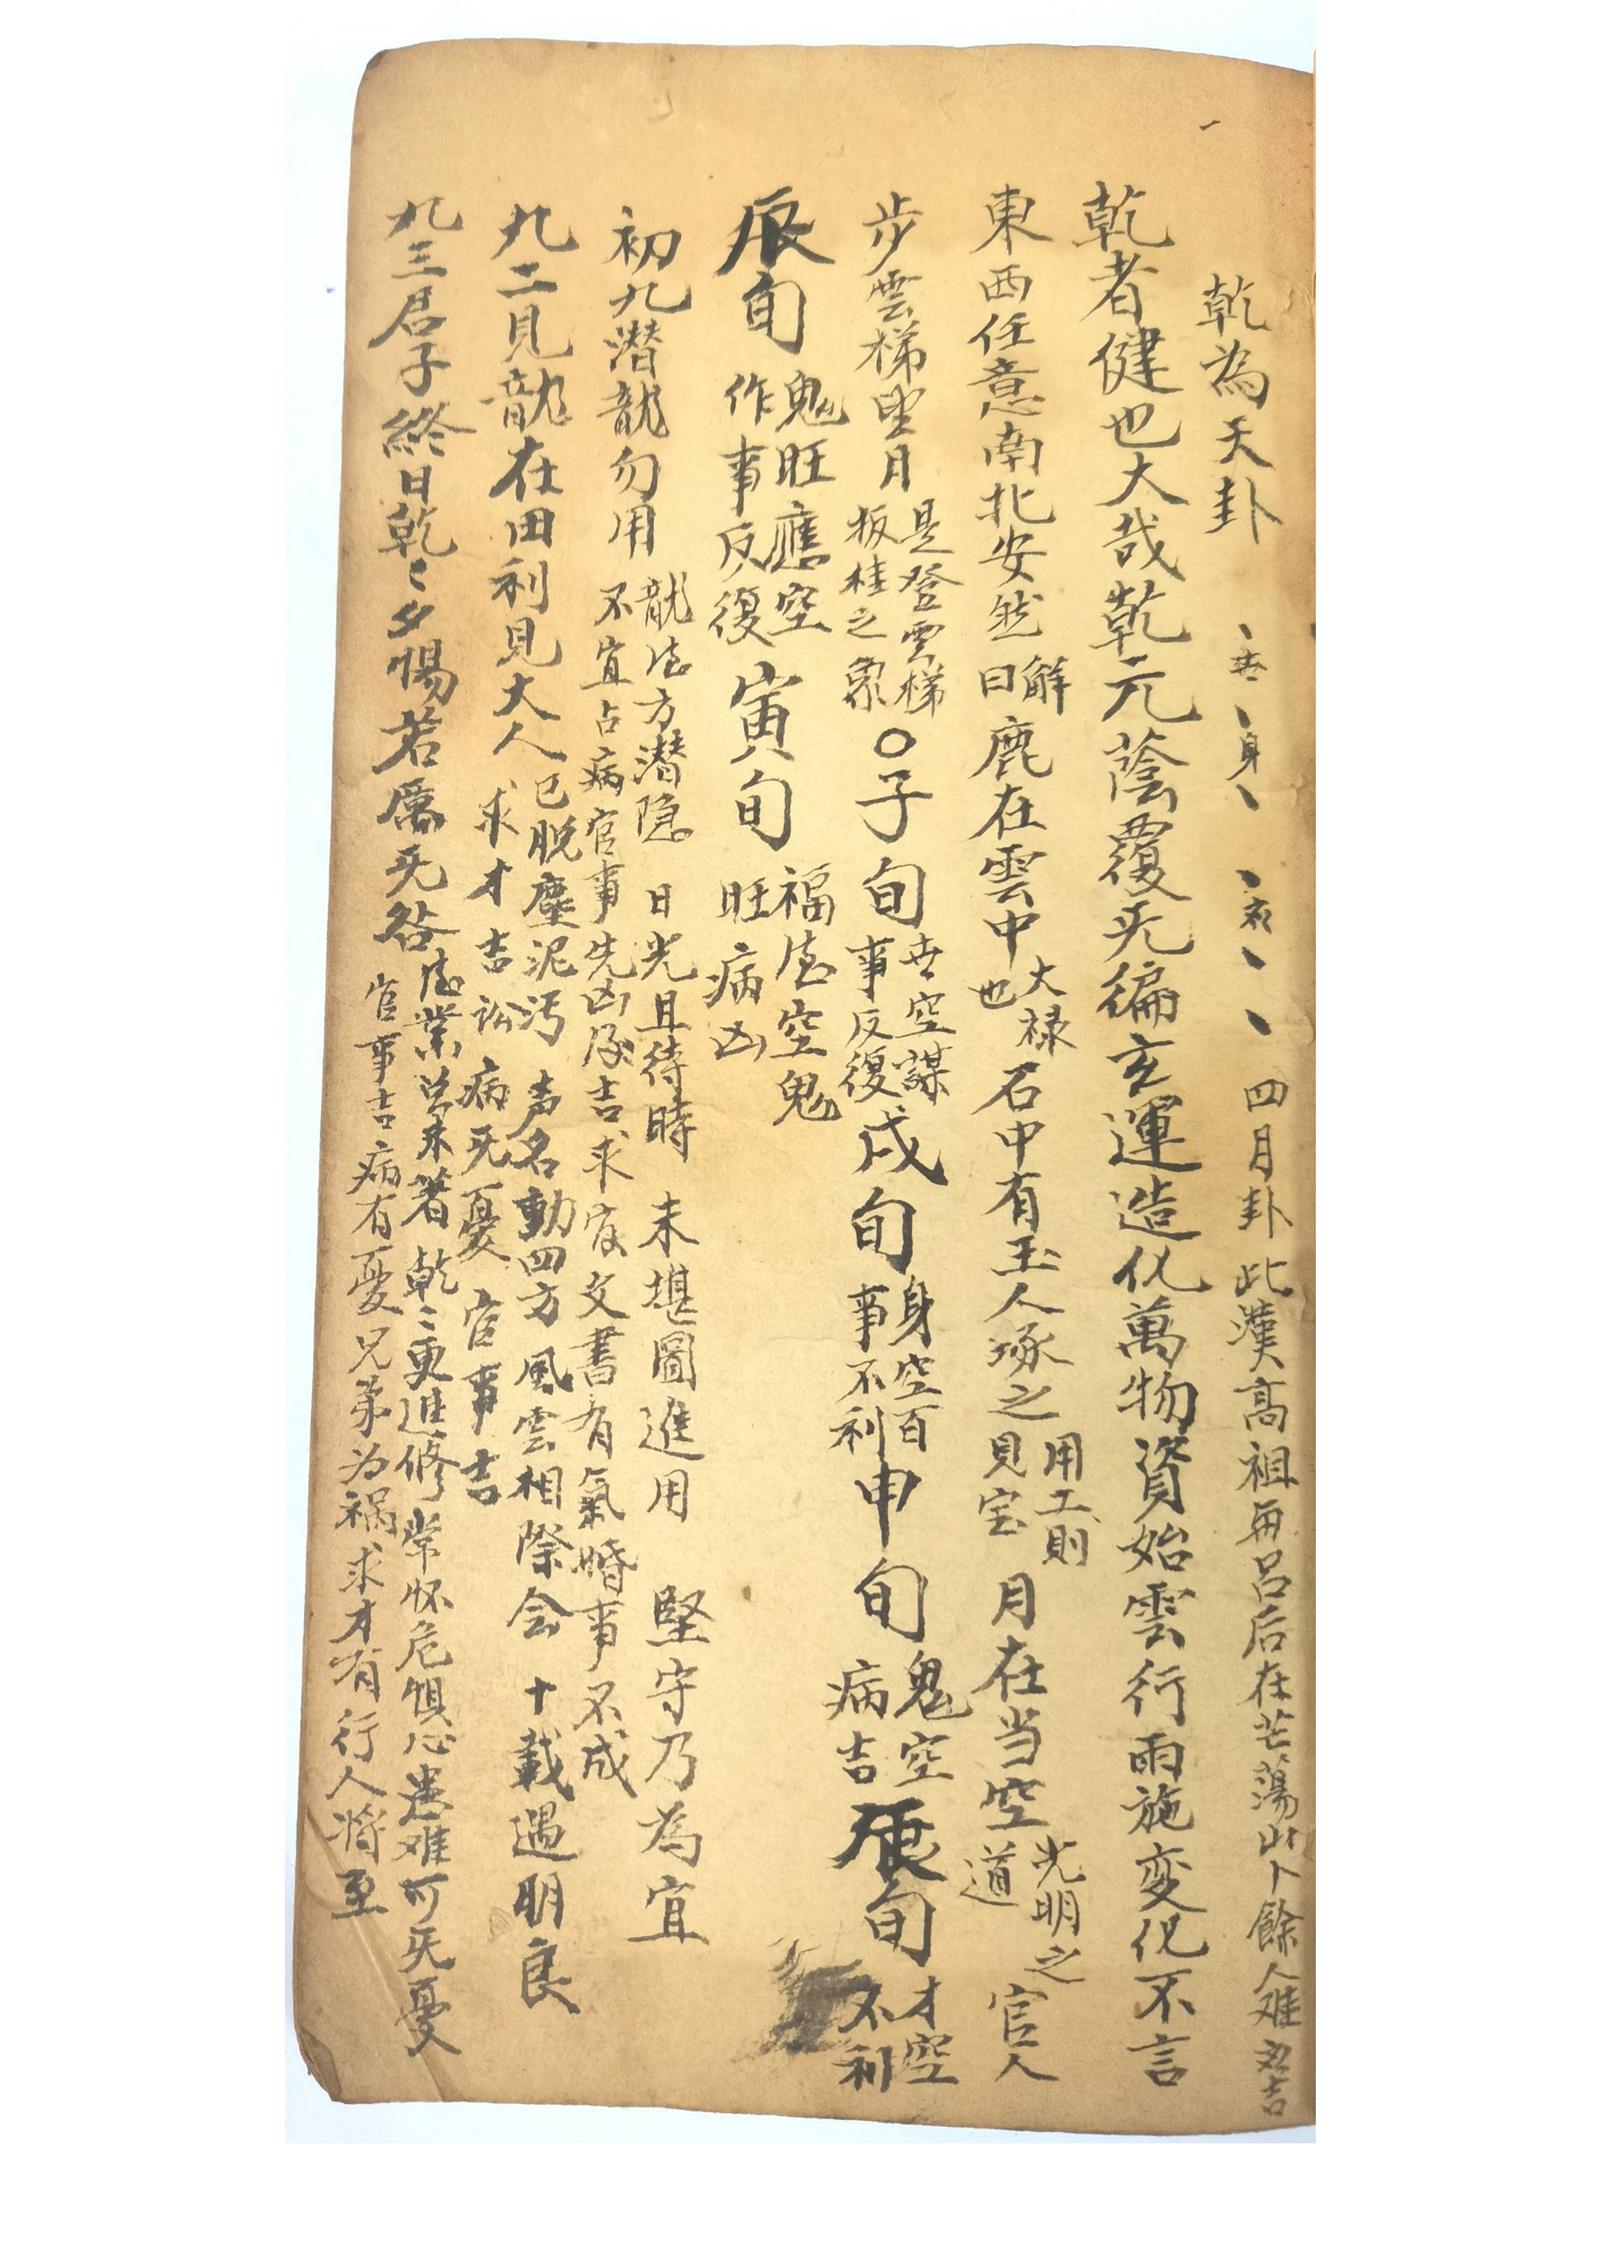 乾為天卦 丶世丶身丶 丶衣丶 丶 四月卦 此漢高祖与呂后在芒蕩山卜 餘人难 吉
乾者健也大哉乾元蔭覆无偏玄運造化萬物資始雲行雨施变化不言
東西任意南北安然 解曰 鹿在雲中 大禄也 石中有玉人琢之 用工則見宝 月在当空 光明之道 官人
步雲梯望月 是登雲梯扳桂之象 〇子旬 世空謀事反復 戌旬 身空百事不利 申旬 鬼空病吉 辰旬 才空不利
辰旬 鬼旺應空作事反復 寅旬 福德空鬼旺病凶
初九潜龍勿用 龍德方潜隐 日光且待時 未堪圖進用 堅守乃為宜
不宜占病官事先凶后吉求官文書有氣婚事不成
九二見龍在田利見大人 已脱塵泥汚 声名動四方 風雲相際会 十載遇明良
求才吉訟病无憂官事吉
九三君子終日乾〻夕惕若厲无咎 德業 未著 乾〻更進修 常怀危惧心 患难可无憂
官事吉病有憂兄弟为祸求才有行人将至